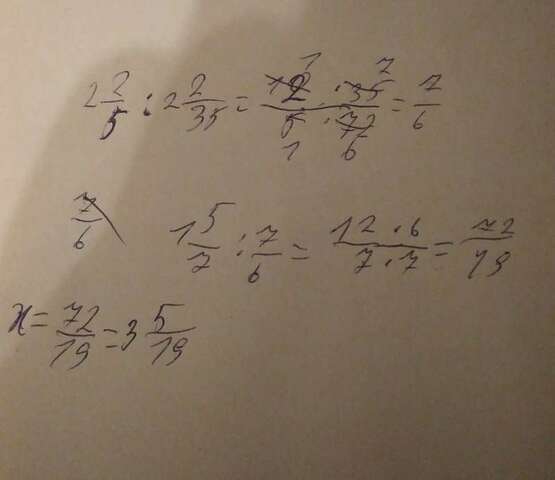 2 2/5 : 2 2/35 = 12 · 35 / 5 · 72 = 7/6
7/6
1 5/7 : 7/6 = 12 · 6 / 7 · 7 = 72/19
x = 72/19 = 3 5/19